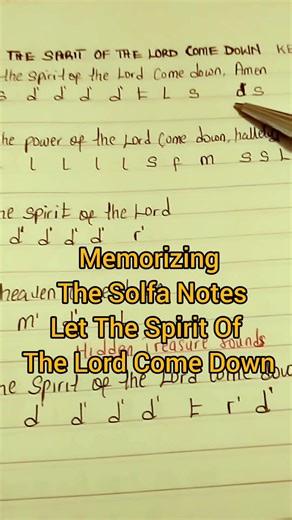 THE SPIRIT OF THE LORD COME DOWN KE
the spirit of the Lord Come down, Amen
s d' d' d' d' t L s d s
he power of the Lord Come down, hallelu
L L L L s f m s s L
he spirit of the Lord
d' d' d' d' r'
Memorizing
heaven
The Solfa Notes
m'
Let The Spirit Of
Hidden Treasure Sounds
The Lord Come Down
he Spirit of the Lord come dow
d' d' d' d' t r' d'